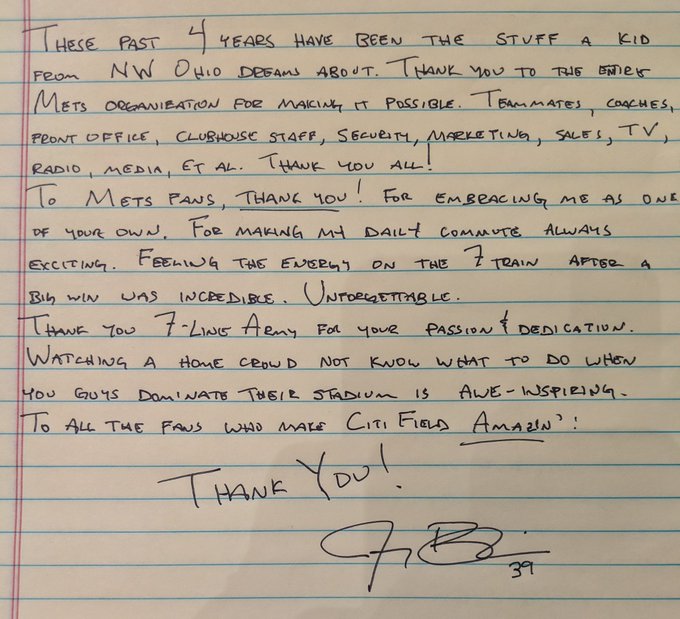 THESE PAST 4 YEARS HAVE BEEN THE STUFF A KID
FROM NW OHIO DREAMS ABOUT. THANK YOU TO THE ENTIRE
METS ORGANIZATION FOR MAKING IT POSSIBLE. TEAMMATES, COACHES,
FRONT OFFICE, CLUBHOUSE STAFF, SECURITY, MARKETING, SALES, TV,
RADIO, MEDIA, ET AL. THANK YOU ALL!
TO METS FANS, THANK YOU! FOR EMBRACING ME AS ONE
OF YOUR OWN. FOR MAKING MY DAILY COMMUTE ALWAYS
EXCITING. FEELING THE ENERGY ON THE 7 TRAIN AFTER A
BIG WIN WAS INCREDIBLE. UNFORGETTABLE.
THANK YOU 7-LINE ARMY FOR YOUR PASSION & DEDICATION.
WATCHING A HOME CROWD NOT KNOW WHAT TO DO WHEN
YOU GUYS DOMINATE THEIR STADIUM IS AWE-INSPIRING.
TO ALL THE FANS WHO MAKE CITI FIELD AMAZIN':
THANK YOU!
39